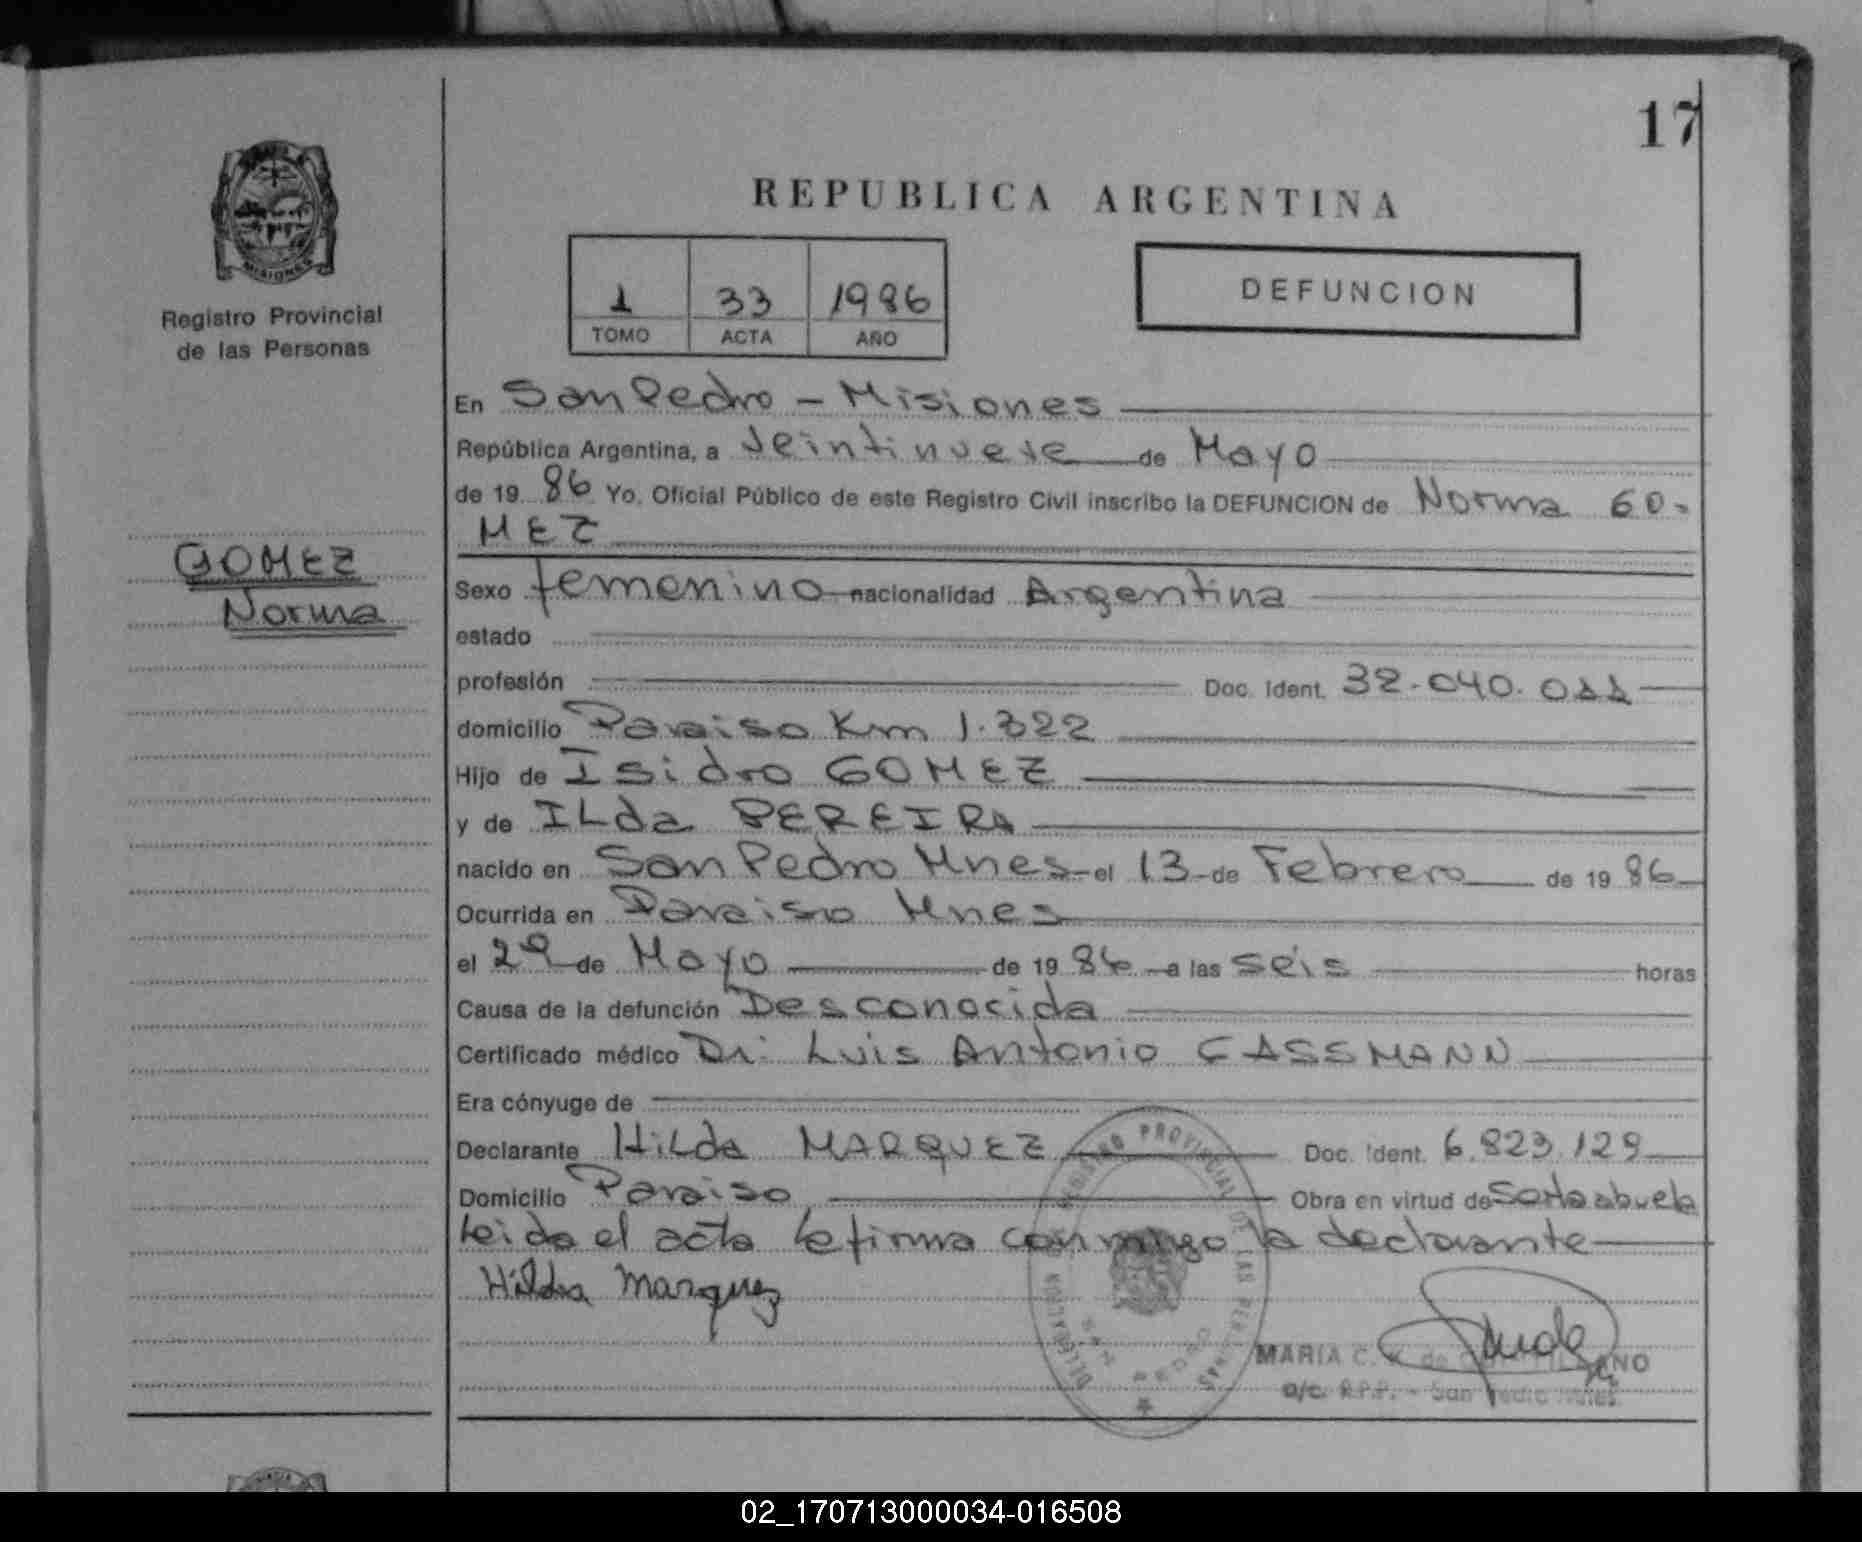 17
MISIONES
Registro Provincial
de las Personas
REPUBLICA ARGENTINA
1 33 1986
TOMO ACTA AÑO
DEFUNCION
En San Pedro - Misiones
República Argentina, a Veintinueve de Mayo
de 19 86 Yo, Oficial Público de este Registro Civil inscribo la DEFUNCION de Norma GO-
MEZ
GOMEZ
Norma
Sexo femenino nacionalidad Argentina
estado
profesión Doc. Ident. 32.040.011
domicilio Paraiso Km 1.322
Hijo de Isidro GOMEZ
y de ILda PEREIRA
nacido en San Pedro Mnes el 13 de Febrero de 19 86
Ocurrida en Paraiso Mnes
el 29 de Mayo de 19 86 a las seis horas
Causa de la defunción Desconocida
Certificado médico Dr. Luis Antonio CASSMANN
Era cónyuge de
Declarante HiLda MARQUEZ Doc. Ident. 6.823.129
Domicilio Paraiso Obra en virtud de abuela
Leida el acta la firma conmigo la declarante
Hilda Marquez
DELEGACION REGISTRO PROVINCIAL DE LAS PERSONAS
MARIA C.
a/c. R.P.P. - San Pedro Mnes.
02_170713000034-016508